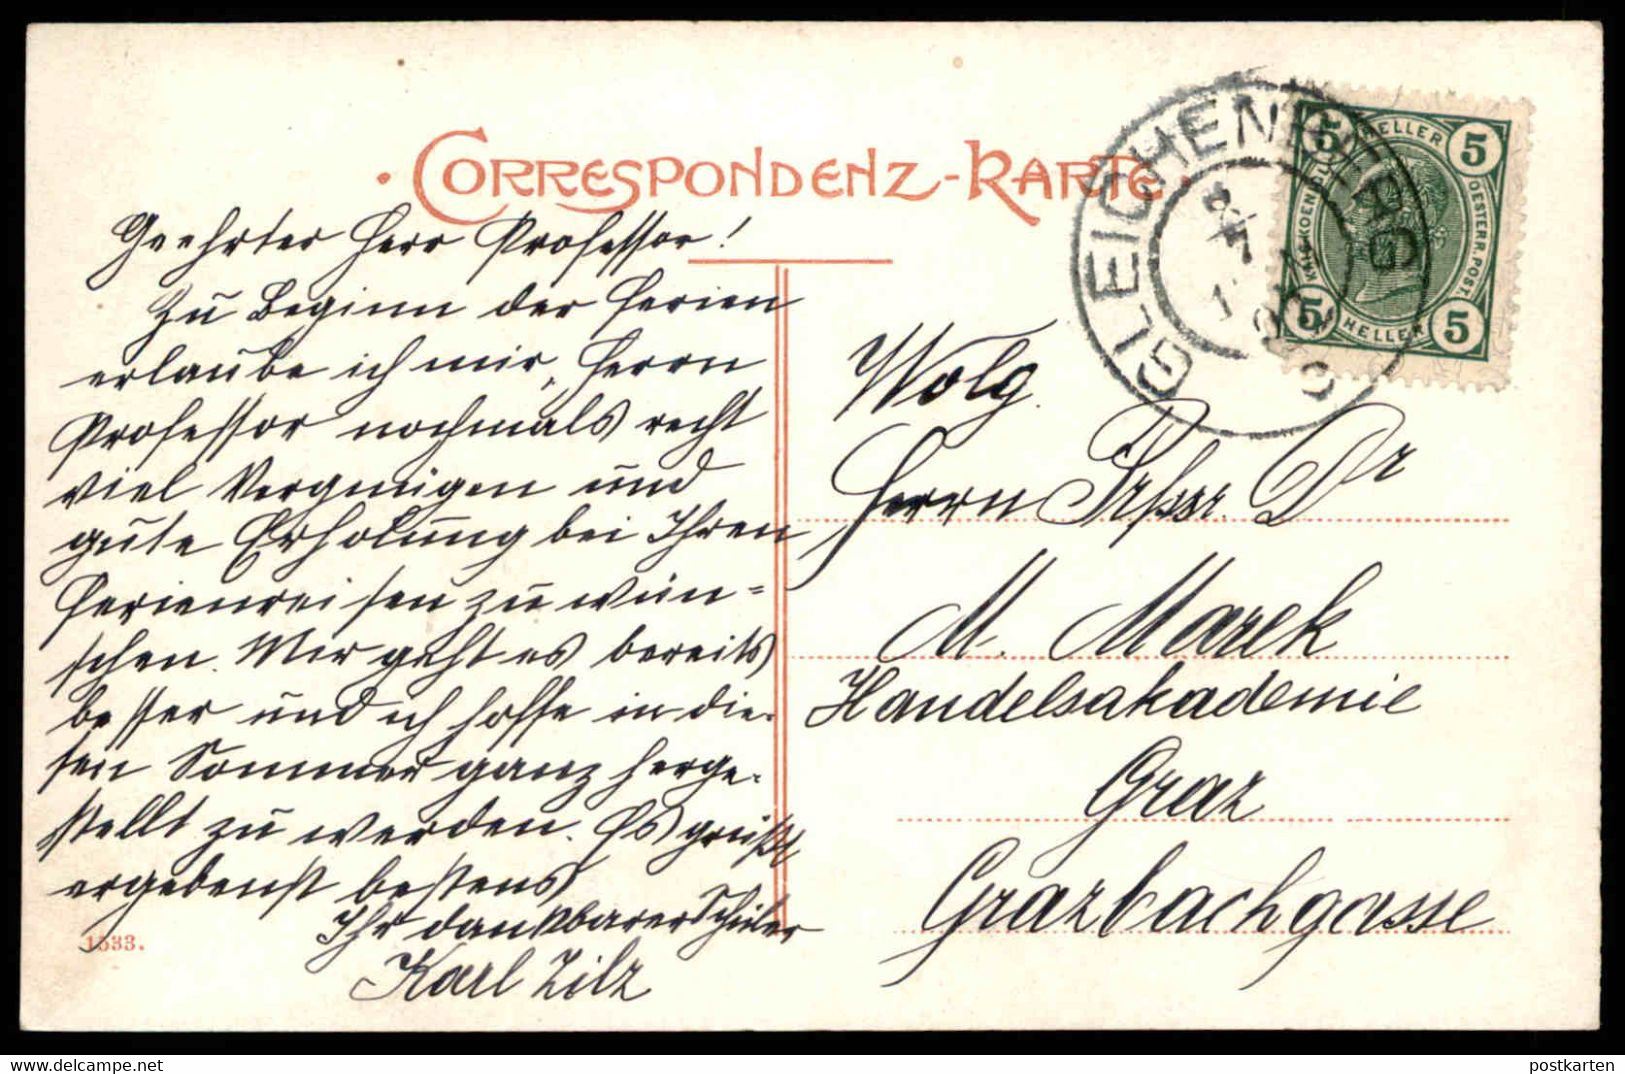 CORRESPONDENZ-KARTE
Geehrter Herr Professor!
Zu Beginn der Ferien
erlaube ich mir, Herrn
Professor nochmals recht
viel Vergnügen und
gute Erholung bei Ihren
Ferienreisen zu wün=
schen. Mir geht es bereits
besser und ich hoffe in die-
sem Sommer ganz herge-
stellt zu werden. Es grüßt
ergebenst bestens
Ihr dankbarer Schüler
Karl Zilz
1533.
GLEICHENBERG
5 HELLER 5
KAIS. KOENIGL. OESTERR. POST.
5 HELLER 5
Wolg.
Herrn Prfssr. Dr
M. Marek
Handelsakademie
Graz
Grazbachgasse
postkarten